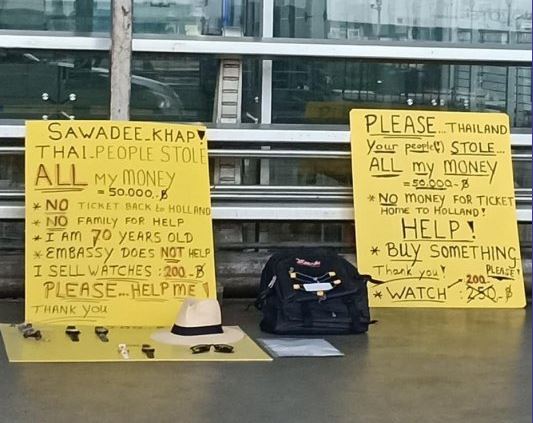 SAWADEE-KHAP!
THAI-PEOPLE STOLE
ALL MY MONEY
= 50.000.-฿
* NO TICKET BACK to HOLLAND
* NO FAMILY FOR HELP
* I AM 70 YEARS OLD
* EMBASSY DOES NOT HELP
I SELL WATCHES : 200.-฿
PLEASE...HELP ME!
THANK YOU
PLEASE...THAILAND
Your people(!) STOLE...
ALL my MONEY
= 50.000.-฿
* NO MONEY FOR TICKET
HOME TO HOLLAND!
HELP!
* BUY SOMETHING
Thank you! PLEASE!
200
* WATCH 250.-฿